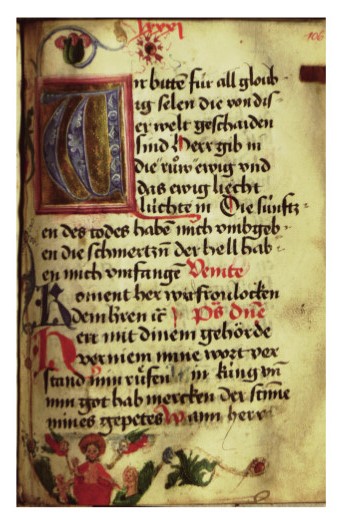 lxxxi
106
Wir bitten für all gloub
ig selen die von dis
er welt geschaiden
sind Herr gib in
die růw ewig vnd
das ewig liecht
lüchte in Die sünftz
en des todes habe mich vmbgeb
en die schmertzn der hell hab
en mich vmfange Venite
Koment her wir fronlocken
dem hren
Ps Dne
Herr mit dinem gehörde
verniem mine wort ver
stand min rüfen min küng vn
min got hab mercken der stime
mines gepetes Wann herr